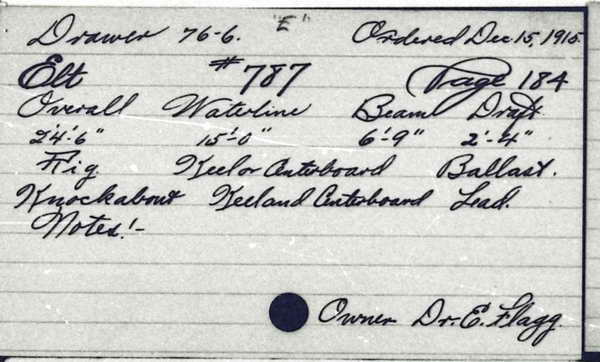 Drawer 76-6. "E" Ordered Dec. 15, 1915
Elt #787 Page 184
Overall Waterline Beam Draft
24'-6" 15'-0" 6'-9" 2'-4"
Rig Keel or Centerboard Ballast.
Knockabout Keel and Centerboard Lead.
Notes:-
Owner Dr. E. Flagg.